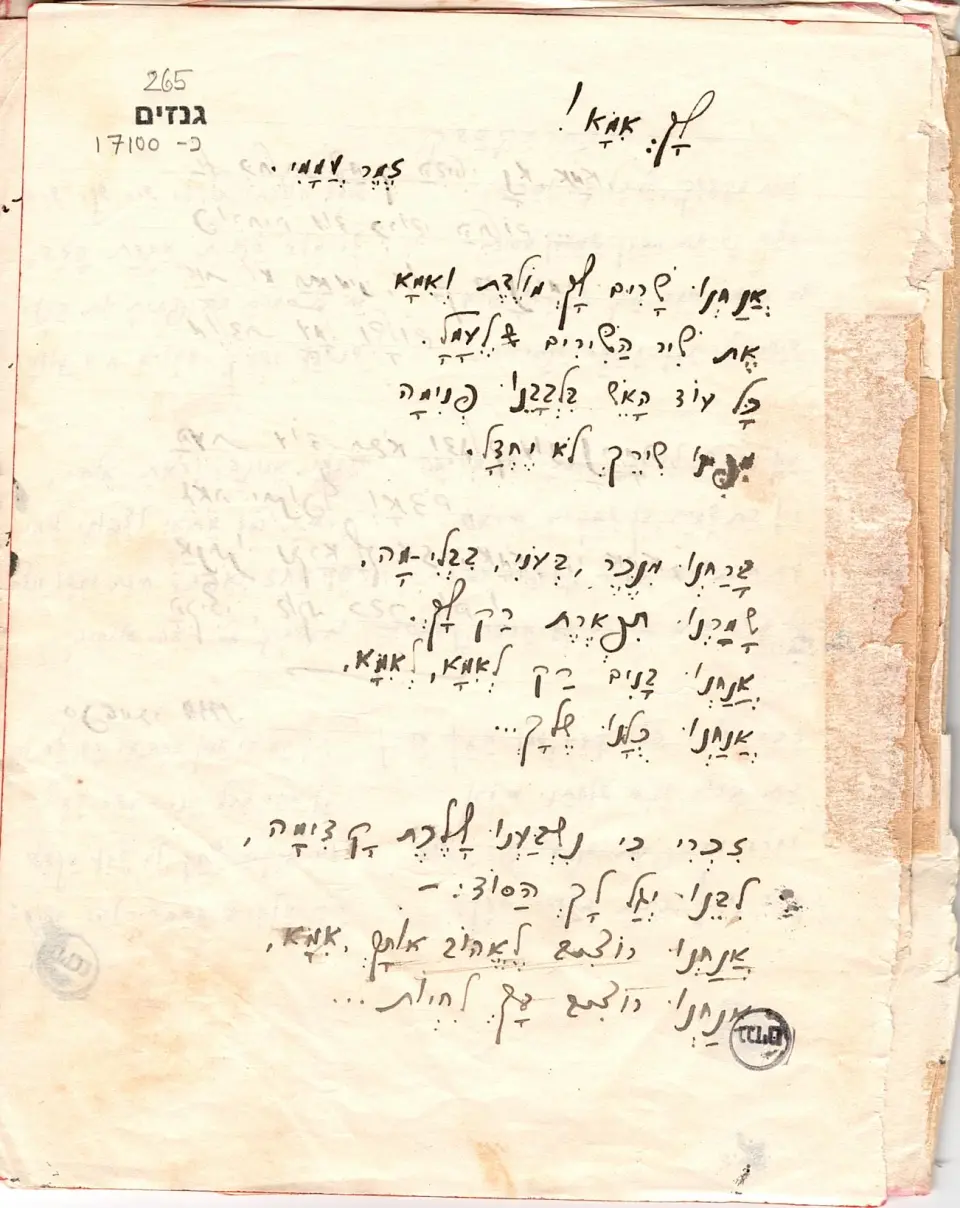 265
גנזים
כ- 17100
לָךְ, אִמָּא!
זֶמֶר עֲמָמִי.
אֲנַחְנוּ שָׁרִים לָךְ מוֹלֶדֶת וְאִמָּא
אֶת שִׁיר הַשִּׁירִים לֶעָמָל.
כָּל עוֹד הָאֵשׁ בִּלְבָבֵנוּ פְּנִימָה
שִׁירֵךְ לֹא יֶחְדָּל.
בָּרַחְנוּ מִנֵּכָר, בְּעֹנִי, בִּבְלִי-מָה,
שָׁמַרְנוּ תִּפְאֶרֶת רַק לָךְ.
אֲנַחְנוּ בָּנִים רַק לְאִמָּא, לְאִמָּא,
אֲנַחְנוּ כֻּלָּנוּ שֶׁלָּךְ...
זִכְרִי כִּי נִשְׁבַּעְנוּ לָלֶכֶת קָדִימָה,
לִבֵּנוּ יְגַל לָךְ הַסּוֹד: -
אֲנַחְנוּ רוֹצִים לֶאֱהוֹב אוֹתָךְ, אִמָּא,
אֲנַחְנוּ רוֹצִים לִחְיוֹת...
גנזים